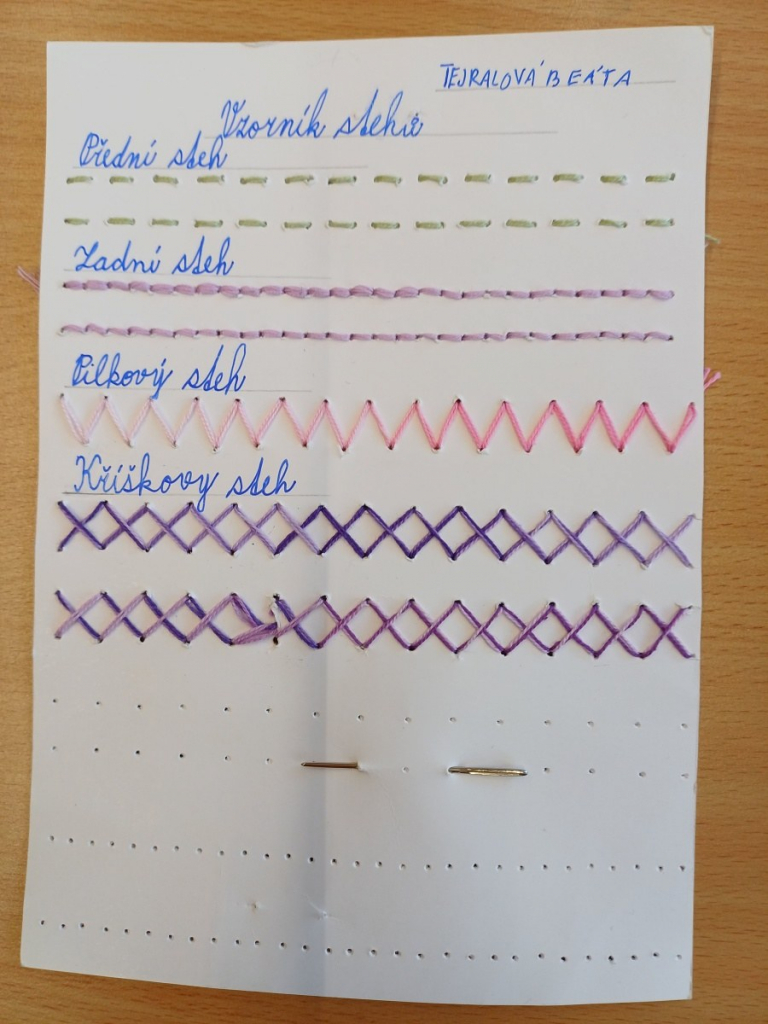 TEJRALOVÁ BEÁTA
Vzorník stehů
Přední steh
Zadní steh
Pilkový steh
Křížkovy steh